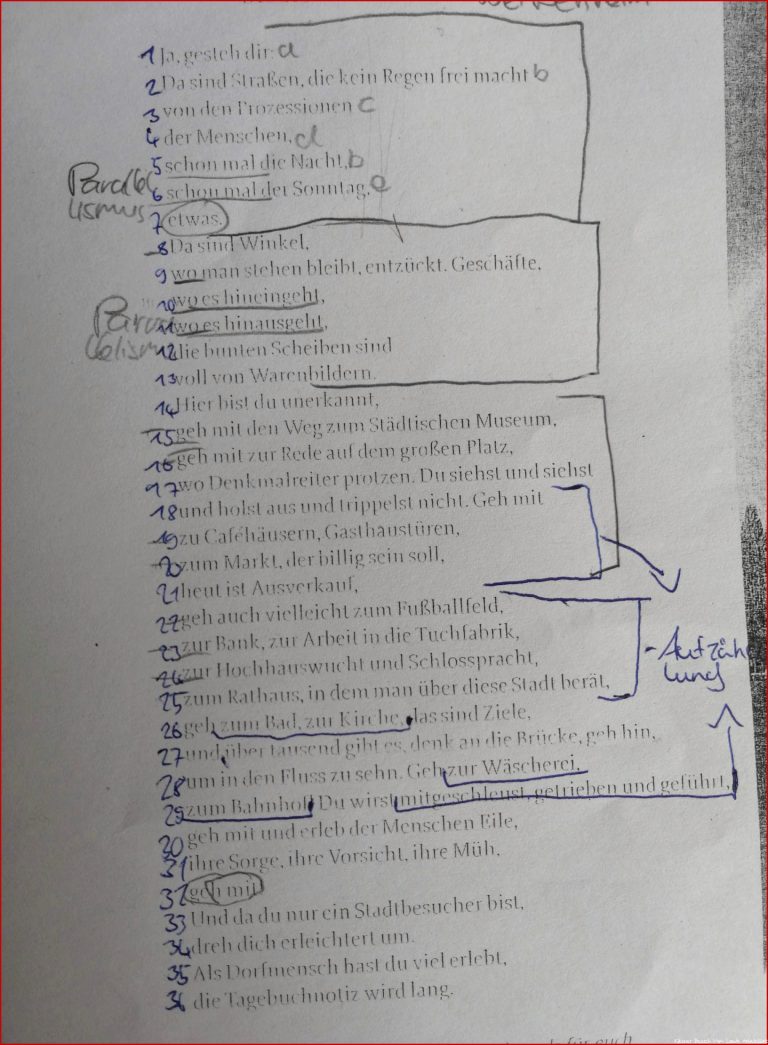 1 Ja, gesteh dir: a
2 Da sind Straßen, die kein Regen frei macht b
3 von den Prozessionen c
4 der Menschen, d
5 schon mal die Nacht, b
Paralle
6 schon mal der Sonntag, e
lismus
7 etwas.
8 Da sind Winkel,
9 wo man stehen bleibt, entzückt. Geschäfte,
10 wo es hineingeht,
11 wo es hinausgeht,
12 die bunten Scheiben sind
13 voll von Warenbildern.
14 Hier bist du unerkannt,
15 geh mit den Weg zum Städtischen Museum,
16 geh mit zur Rede auf dem großen Platz,
17 wo Denkmalreiter protzen. Du siehst und siehst
18 und holst aus und trippelst nicht. Geh mit
19 zu Caféhäusern, Gasthaustüren,
20 zum Markt, der billig sein soll,
21 heut ist Ausverkauf,
22 geh auch vielleicht zum Fußballfeld,
23 zur Bank, zur Arbeit in die Tuchfabrik,
24 zur Hochhauswucht und Schlosspracht,
Aufzäh
lung
25 zum Rathaus, in dem man über diese Stadt berät,
26 geh zum Bad, zur Kirche, das sind Ziele,
27 und über tausend gibt es, denk an die Brücke, geh hin,
28 um in den Fluss zu sehn. Geh zur Wäscherei,
29 zum Bahnhof! Du wirst mitgeschleust, getrieben und geführt,
30 geh mit und erleb der Menschen Eile,
31 ihre Sorge, ihre Vorsicht, ihre Müh,
32 geh mit
33 Und da du nur ein Stadtbesucher bist,
34 dreh dich erleichtert um.
35 Als Dorfmensch hast du viel erlebt,
36 die Tagebuchnotiz wird lang.